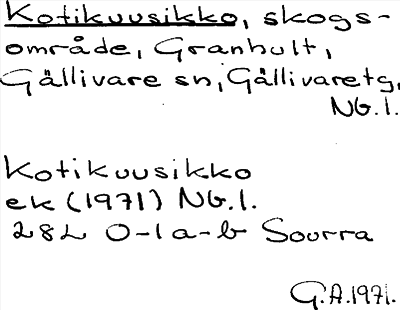 Kotikuusikko, skogs-
område, Granhult,
Gällivare sn, Gällivaretg,
Nb.l.
Kotikuusikko
ek (1971) Nb.l.
28L 0-1a-b Sourra
G.A.1971.